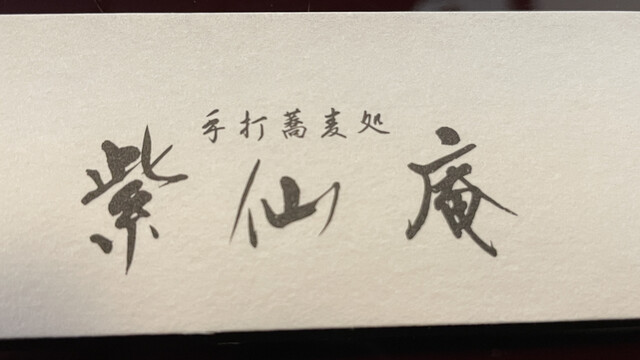 手打蕎麦処
紫仙庵